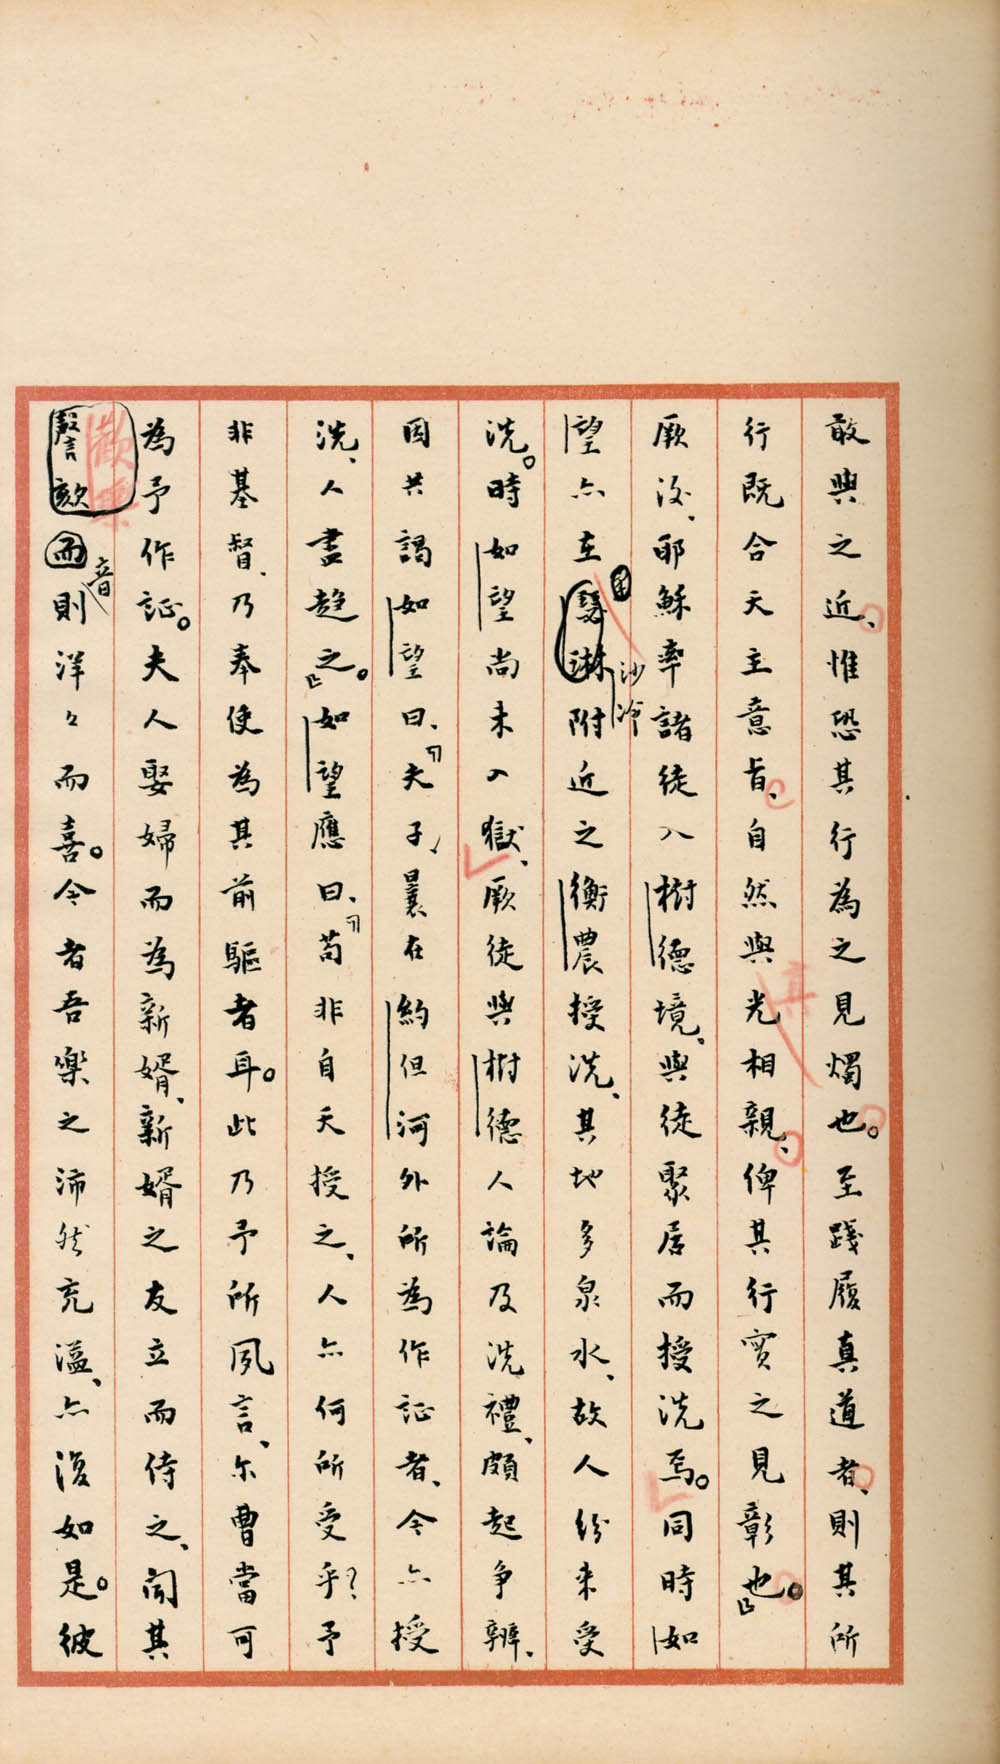 敢與之近、惟恐其行為之見燭也。至踐履真道者、則其所
行既合天主意旨、自然與光相親、俾其行實之見彰也。」
厥後、耶穌率諸徒入樹德境、與徒聚居而授洗焉。同時如
望亦在
沙冷
附近之衡農授洗、其地多泉水、故人紛来受
洗。時如望尚未入獄、厥徒與樹德人論及洗禮、頗起爭辯、
因共謁如望曰、「夫子、曩在約但河外所為作証者、今亦授
洗、人盡趨之。」如望應曰、「苟非自天授之、人亦何所受乎?予
非基督、乃奉使為其前驅者耳。此乃予所夙言、尔曹當可
為予作証。夫人娶婦而為新婿、新婿之友立而侍之、聞其
聲欬
歡樂
而
音
則洋々而喜。今者吾樂之沛然充溢、亦復如是。彼